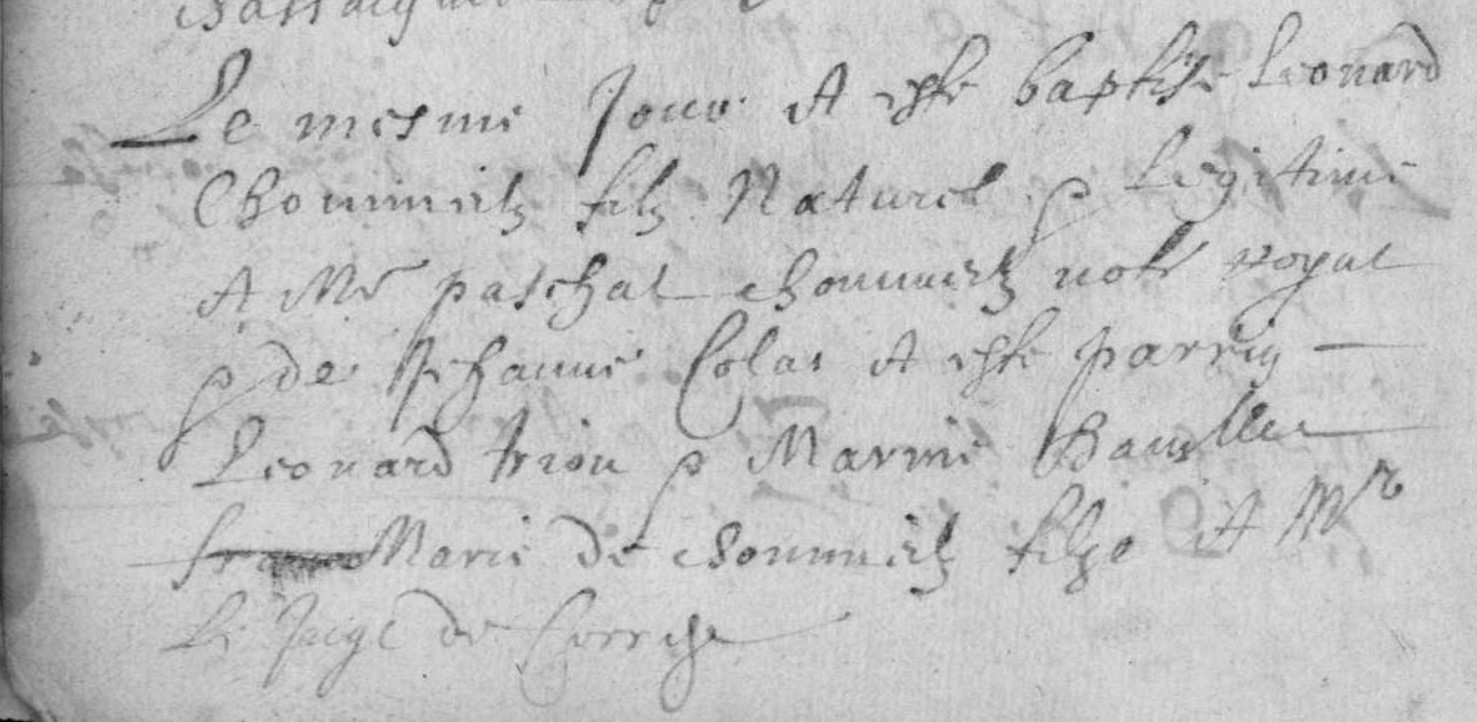 Le mesme Jour A este baptise Leonard
Choumeilz filz Naturel & Legitime
A Me paschal choumeilz not.re royal
& de Jehanne Colas A este parrin
Leonard trion & Marrine
Marie de choumeilz filhe A Mr
Le Juge de Correze